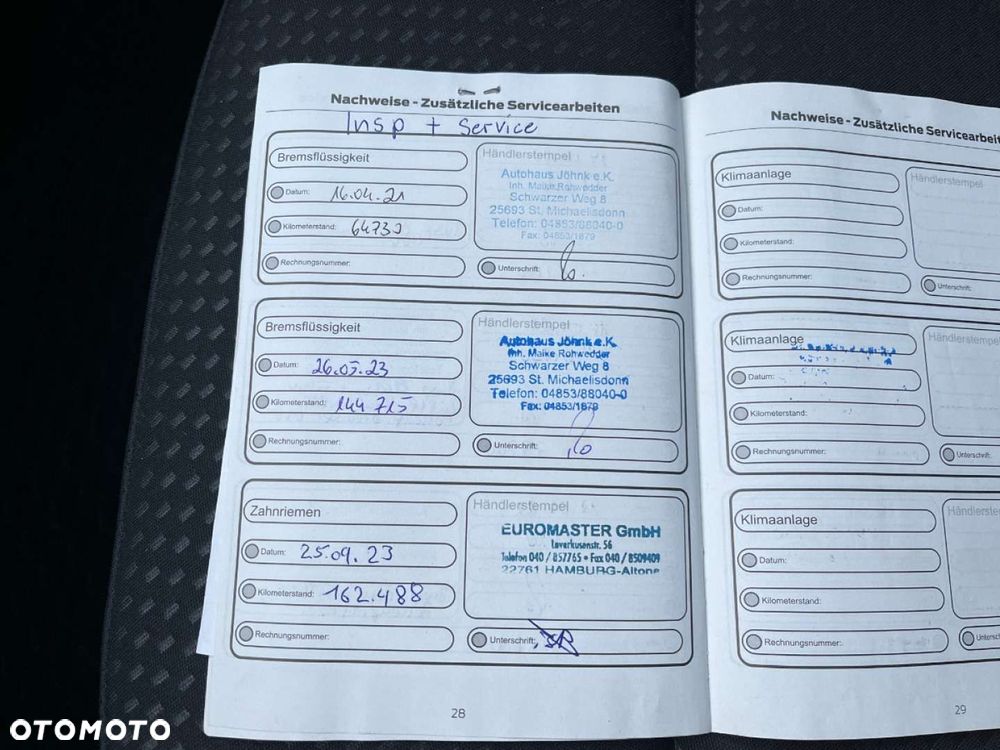 Nachweise - Zusätzliche Servicearbeiten
Insp + Service
Bremsflüssigkeit
Datum: 16.04.21
Kilometerstand: 64730
Rechnungsnummer:
Händlerstempel
Autohaus Jöhnk e.K.
Inh. Maike Rohwedder
Schwarzer Weg 8
25693 St. Michaelisdonn
Telefon: 04853/88040-0
Fax: 04853/1879
Unterschrift:
Bremsflüssigkeit
Datum: 26.05.23
Kilometerstand: 144 715
Rechnungsnummer:
Händlerstempel
Autohaus Jöhnk e.K.
Inh. Maike Rohwedder
Schwarzer Weg 8
25693 St. Michaelisdonn
Telefon: 04853/88040-0
Fax: 04853/1879
Unterschrift:
Zahnriemen
Datum: 25.09.23
Kilometerstand: 162.488
Rechnungsnummer:
Händlerstempel
EUROMASTER GmbH
Leverkusenstr. 56
Telefon 040 / 857765 • Fax 040 / 8509409
22761 HAMBURG-Altona
Unterschrift:
28
Nachweise - Zusätzliche Servicearbeit
Klimaanlage
Datum:
Kilometerstand:
Rechnungsnummer:
Händlerstempel
Unterschrift:
Klimaanlage
Datum:
Kilometerstand:
Rechnungsnummer:
Händlerstempe
Unterschrift:
Klimaanlage
Datum:
Kilometerstand:
Rechnungsnummer:
Händlerste
Untersch
29
OTOMOTO